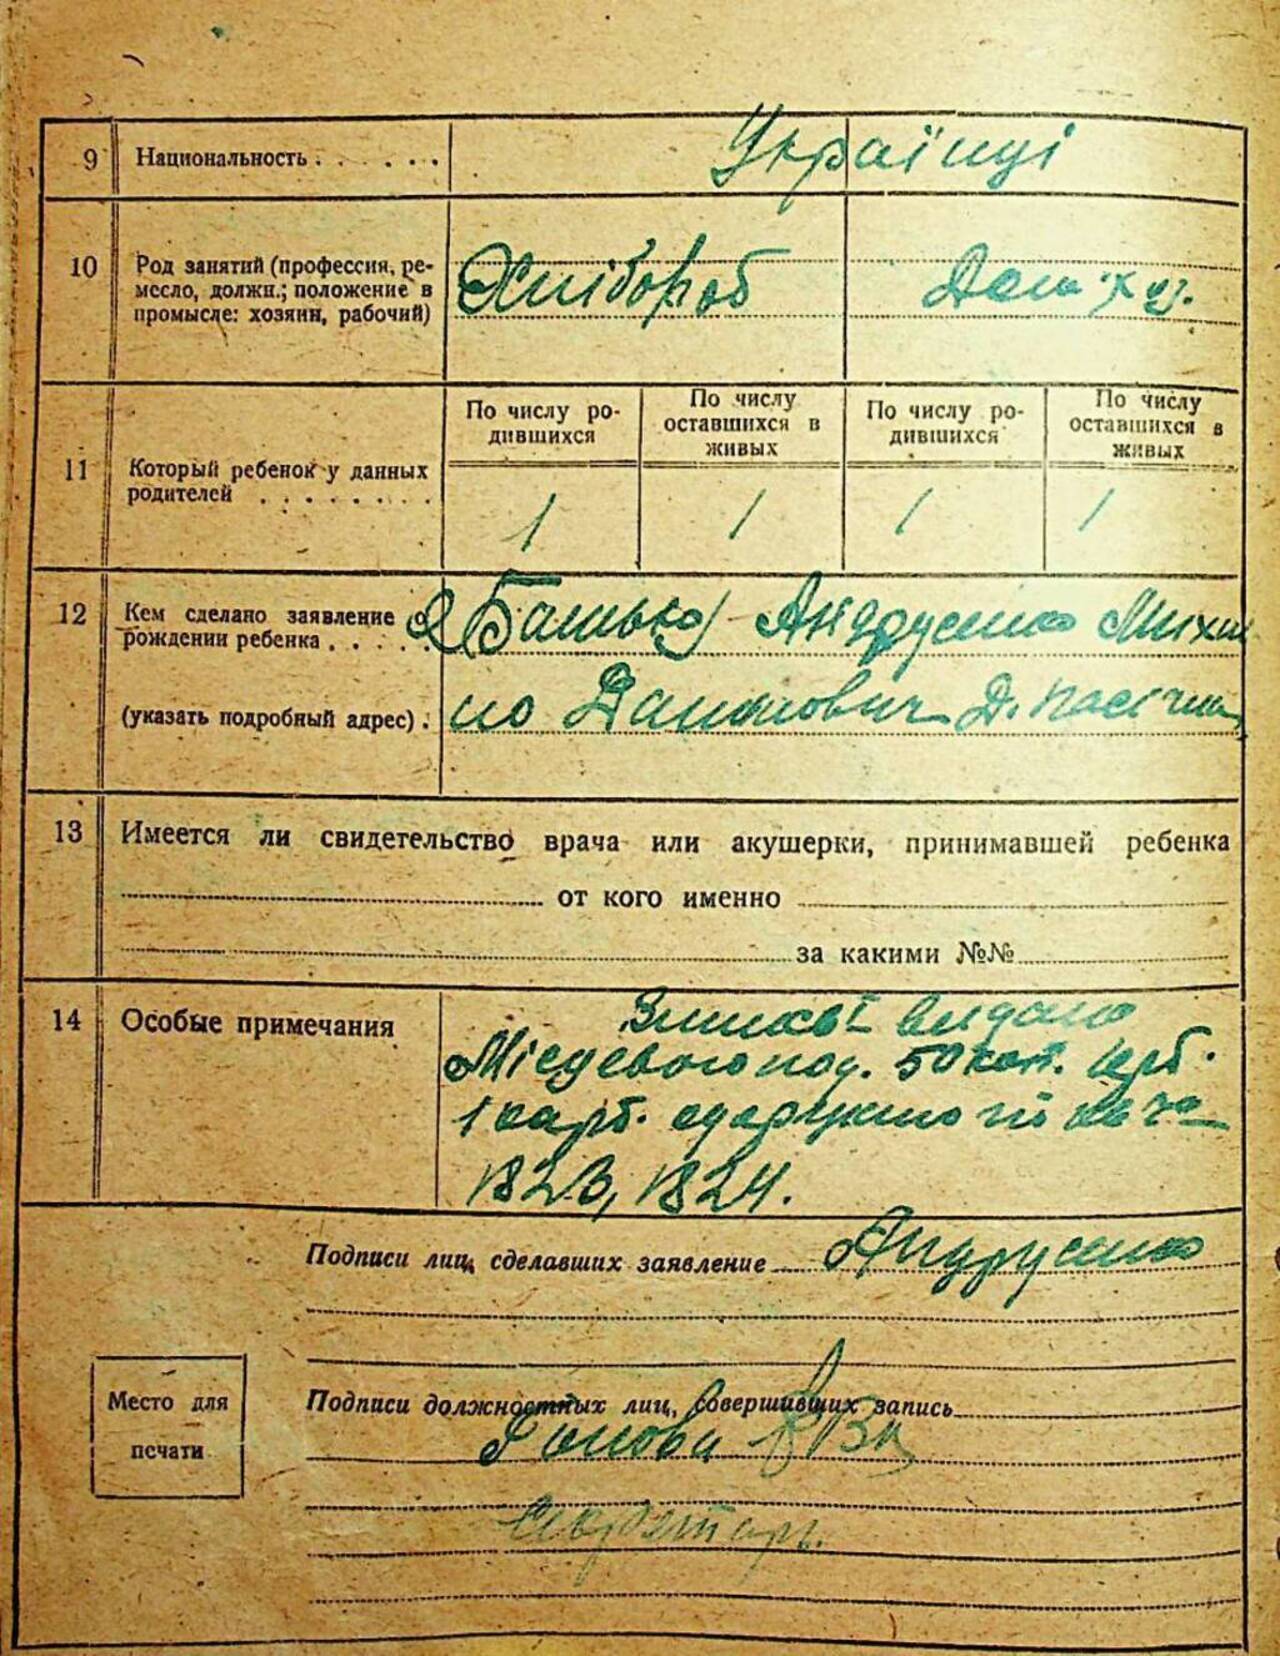 9 Национальность . . . . . . Українці
10 Род занятий (профессия, ре-
месло, должн.; положение в
промысле: хозяин, рабочий)
Хлібороб
По числу ро-
дившихся
По числу
оставшихся в
живых
По числу ро-
дившихся
По числу
оставшихся в
живых
11 Который ребенок у данных
родителей . . . . . . . .
1 1 1 1
12 Кем сделано заявление о
рождении ребенка . . . .
Батько Андрусенко
(указать подробный адрес) .
Данилович
13 Имеется ли свидетельство врача или акушерки, принимавшей ребенка
от кого именно
за какими №№
14 Особые примечания
видано
50 коп.
1 карб. одержано по кв
1823, 1824.
Подписи лиц, сделавших заявление Андрусенко
Место для
печати
Подписи должностных лиц, совершивших запись
Голова
Секретарь